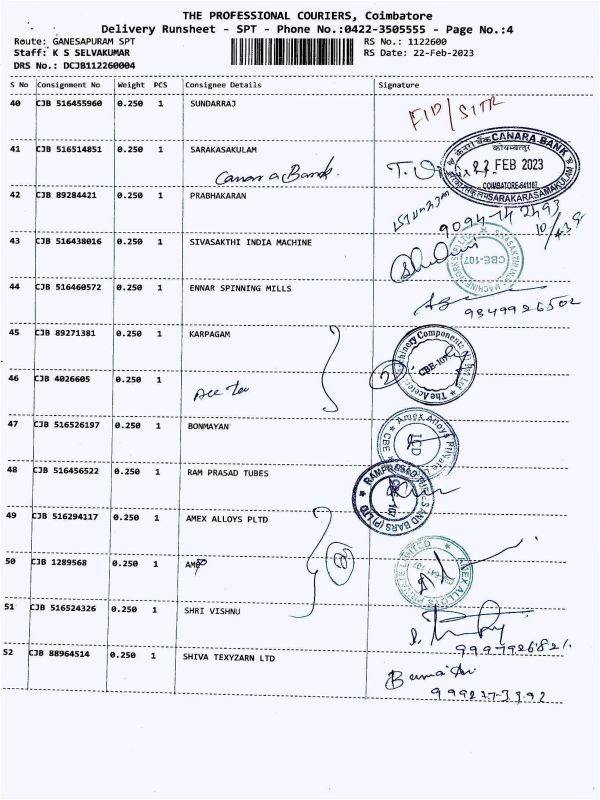 THE PROFESSIONAL COURIERS, Coimbatore
Delivery Runsheet - SPT - Phone No.:0422-3505555 - Page No.:4
Route: GANESAPURAM SPT RS No.: 1122600
Staff: K S SELVAKUMAR RS Date: 22-Feb-2023
DRS No.: DCJB112260004
S No Consignment No Weight PCS Consignee Details Signature
40 CJB 516455960 0.250 1 SUNDARRAJ
41 CJB 516514851 0.250 1 SARAKASAKULAM
Canara Bank
CANARA BANK
FEB 2023
COIMBATORE-641107
42 CJB 89284421 0.250 1 PRABHAKARAN
43 CJB 516438016 0.250 1 SIVASAKTHI INDIA MACHINE
CBE-107
44 CJB 516460572 0.250 1 ENNAR SPINNING MILLS
9849926502
45 CJB 89271381 0.250 1 KARPAGAM
2
CBE-107
46 CJB 4026605 0.250 1
47 CJB 516526197 0.250 1 BONMAYAN
48 CJB 516456522 0.250 1 RAM PRASAD TUBES
49 CJB 516294117 0.250 1 AMEX ALLOYS PLTD
50 CJB 1289568 0.250 1
AMEX ALLOYS PRIVATE LIMITED
51 CJB 516524326 0.250 1 SHRI VISHNU
9997926821
52 CJB 88964514 0.250 1 SHIVA TEXYZARN LTD